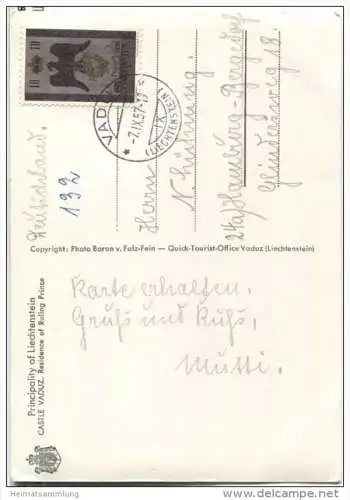 10 10
VADUZ
-7.IX.57-19
(LIECHTENSTEIN)
Deutschland.
192
Herrn
N.
24a) Hamburg-Bergedorf
18.
Copyright: Photo Baron v. Falz-Fein — Quick-Tourist-Office Vaduz (Liechtenstein)
Principality of Liechtenstein
CASTLE VADUZ, Residence of Ruling Prince
Karte erhalten.
Gruß und Kuß,
Mutti.
Heimatsammlung
www.ansichtskarten-center.de